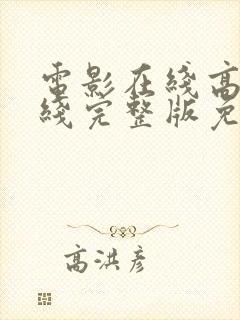 電影在綫高
綫完整版免
高洪彦